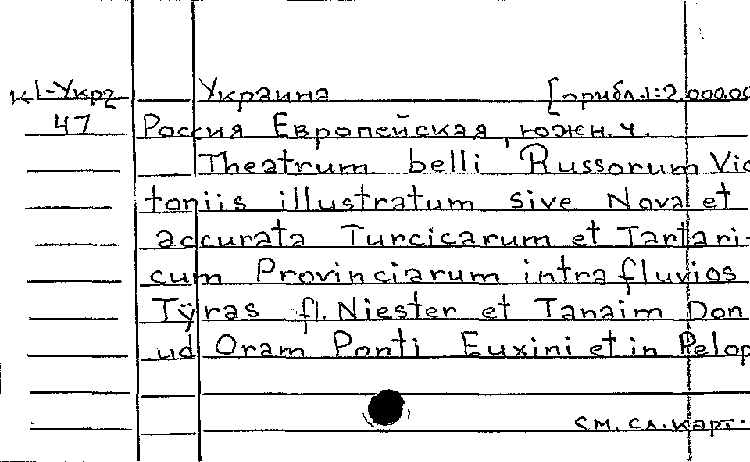 К1-Укр2 Украина [прибл.1:2.000.00
47 Россия Европейская, южн. ч.
Theatrum belli Russorum Vic
toriis illustratum sive Nova et
accurata Turcicarum et Tartari-
cum Provinciarum intra fluvios
Tÿras fl. Niester et Tanaim Don
ud Oram Ponti Euxini et in Pelop
см. сл. карт.